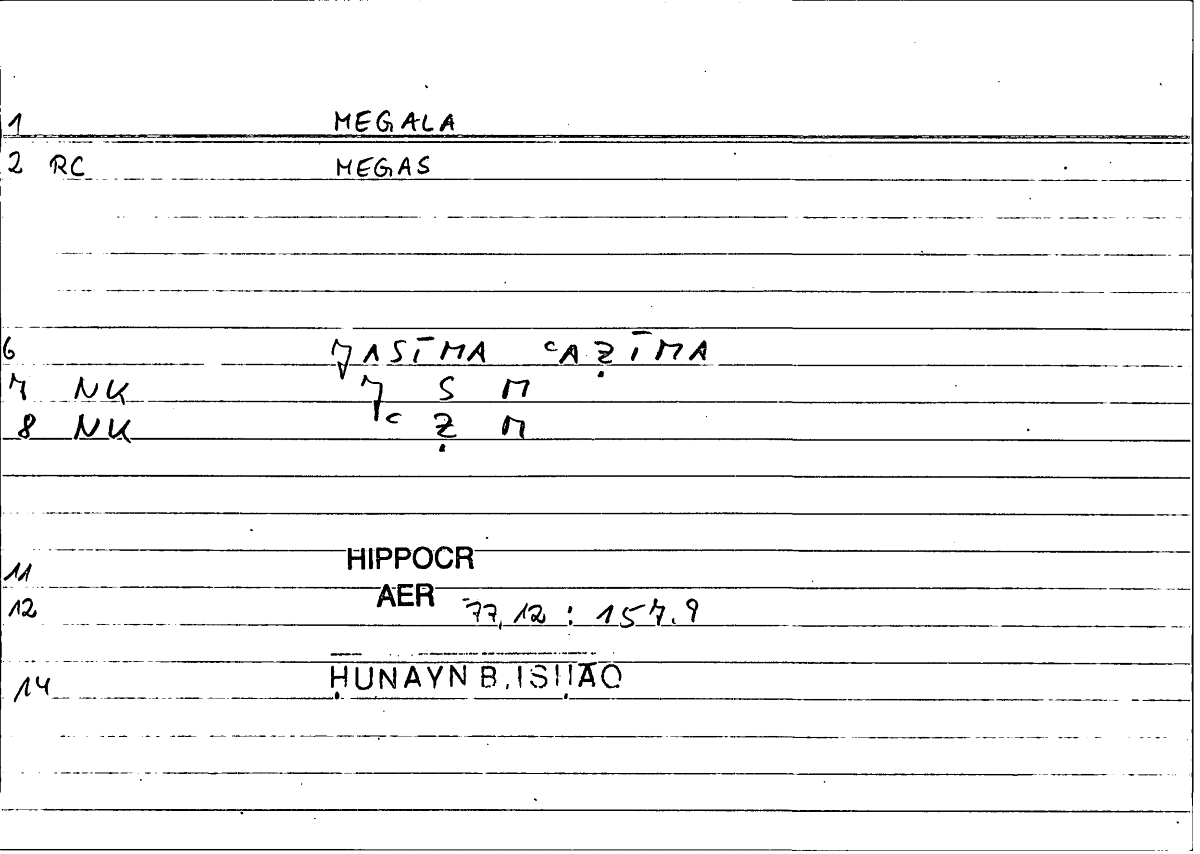 1 MEGALA
2 RC MEGAS
6 ǦASĪMA ᶜAẒĪMA
7 NK Ǧ S M
8 NK ᶜ Ẓ M
11 HIPPOCR
12 AER 77,12 : 157.9
14 ḤUNAYN B. ISḤĀQ